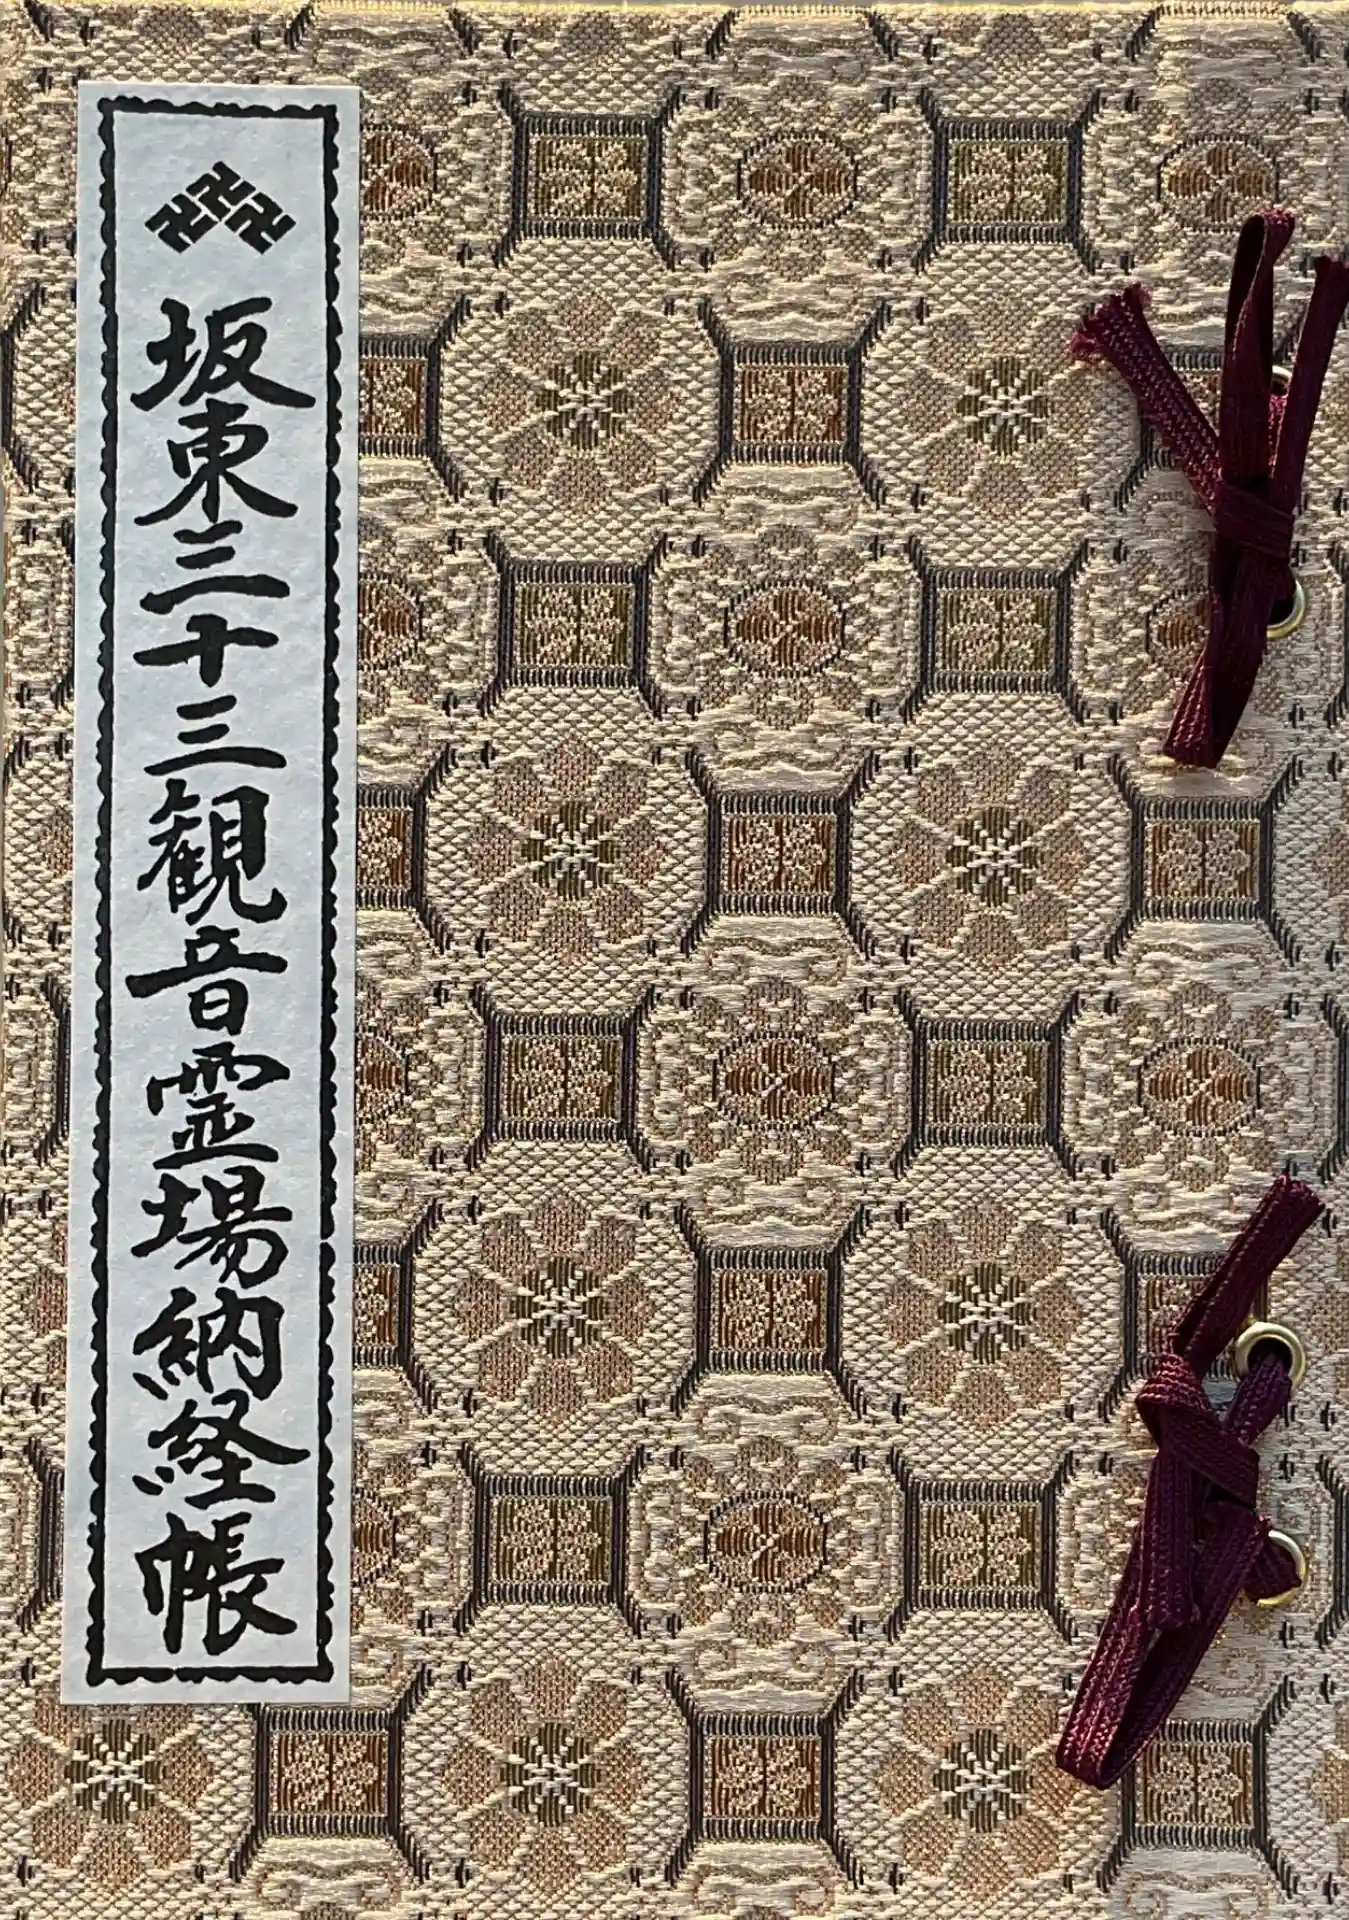 卍卍卍
坂東三十三観音霊場納経帳